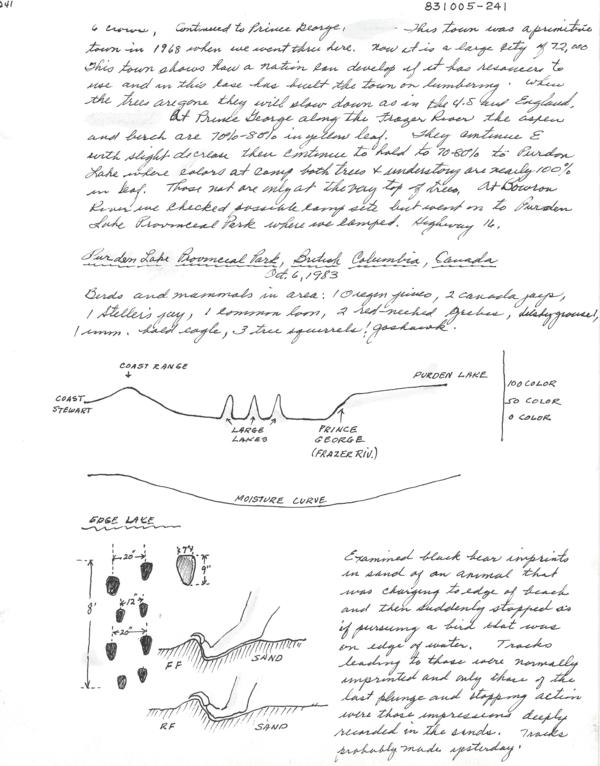 241
831005-241
6 crows, Continued to Prince George. This town was a primitive
town in 1968 when we went thru here. Now it is a large city of 72,000
This town shows how a nation can develop if it has resources to
use and in this case has built the town on lumbering. When
the trees are gone they will slow down as in the U.S. and England.
At Prince George along the Frazer River the aspen
and birch are 70%-80% in yellow leaf. They continue E
with slight decrease then continue to hold to 70-80% to Purden
Lake where colors at camp both trees & understory are nearly 100%
in leaf. Those not are only at the very top of trees. At Bowron
River we checked possible camp site but went on to Purden
Lake Provincial Park where we camped. Highway 16.
Purden Lake Provincial Park, British Columbia, Canada
Oct. 6, 1983
Birds and mammals in area: 1 Oregon junco, 2 canada jays,
1 Steller's jay, 1 common loon, 2 red-necked grebes, 1 dusky grouse,
1 imm. bald eagle, 3 tree squirrels, 1 goshawk.
COAST RANGE
PURDEN LAKE
100 COLOR
COAST
STEWART
50 COLOR
0 COLOR
LARGE
LAKES
PRINCE
GEORGE
(FRAZER RIV.)
MOISTURE CURVE
EDGE LAKE
20"
7"
9"
8'
12"
20"
FF
SAND
RF
SAND
Examined black bear imprints
in sand of an animal that
was charging to edge of beach
and then suddenly stopped as
if pursuing a bird that was
on edge of water. Tracks
leading to those were normally
imprinted and only those of the
last plunge and stopping action
were those impressions deeply
recorded in the sands. Tracks
probably made yesterday.